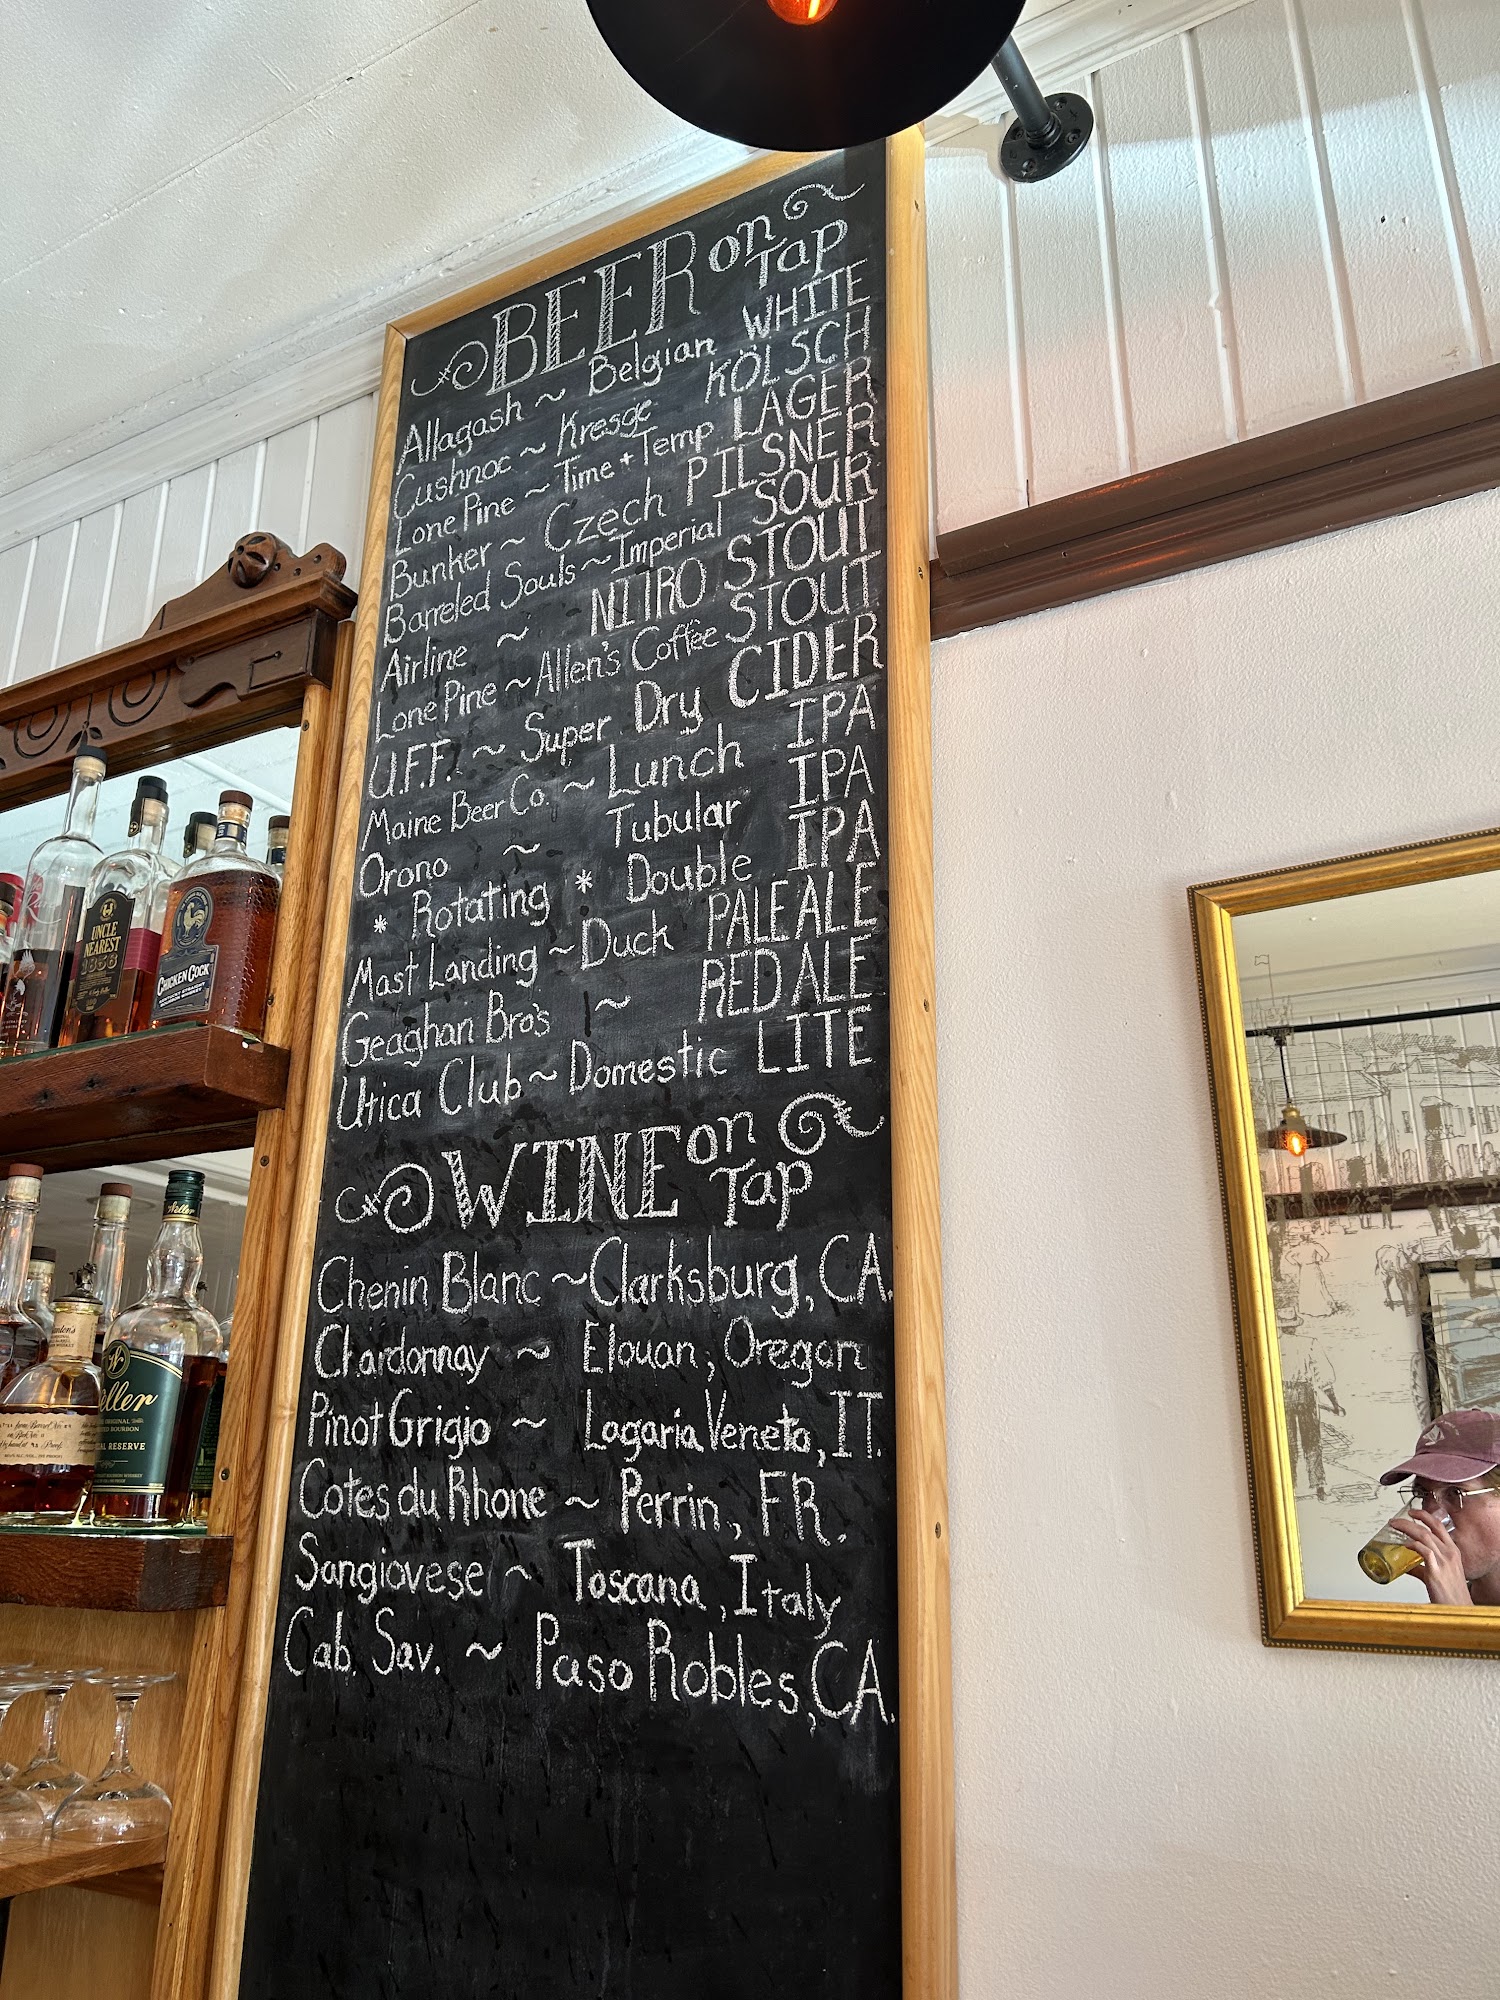 BEER on Tap
Allagash ~ Belgian WHITE
Cushnoc ~ Kresge KÖLSCH
Lone Pine ~ Time + Temp LAGER
Bunker ~ Czech PILSNER
Barreled Souls ~ Imperial SOUR
Airline ~ NITRO STOUT
Lone Pine ~ Allen's Coffee STOUT
U.F.F. ~ Super Dry CIDER
Maine Beer Co. ~ Lunch IPA
Orono ~ Tubular IPA
* Rotating * Double IPA
Mast Landing ~ Duck PALE ALE
Geaghan Bro's ~ RED ALE
Utica Club ~ Domestic LITE
WINE on Tap
Chenin Blanc ~ Clarksburg, CA.
Chardonnay ~ Elouan, Oregon
Pinot Grigio ~ Lagaria Veneto, IT.
Cotes du Rhone ~ Perrin, FR.
Sangiovese ~ Toscana, Italy
Cab. Sav. ~ Paso Robles, CA.
UNCLE
NEAREST
1856
CHICKEN COCK
Weller
eller
ORIGINAL
BOURBON
AL RESERVE